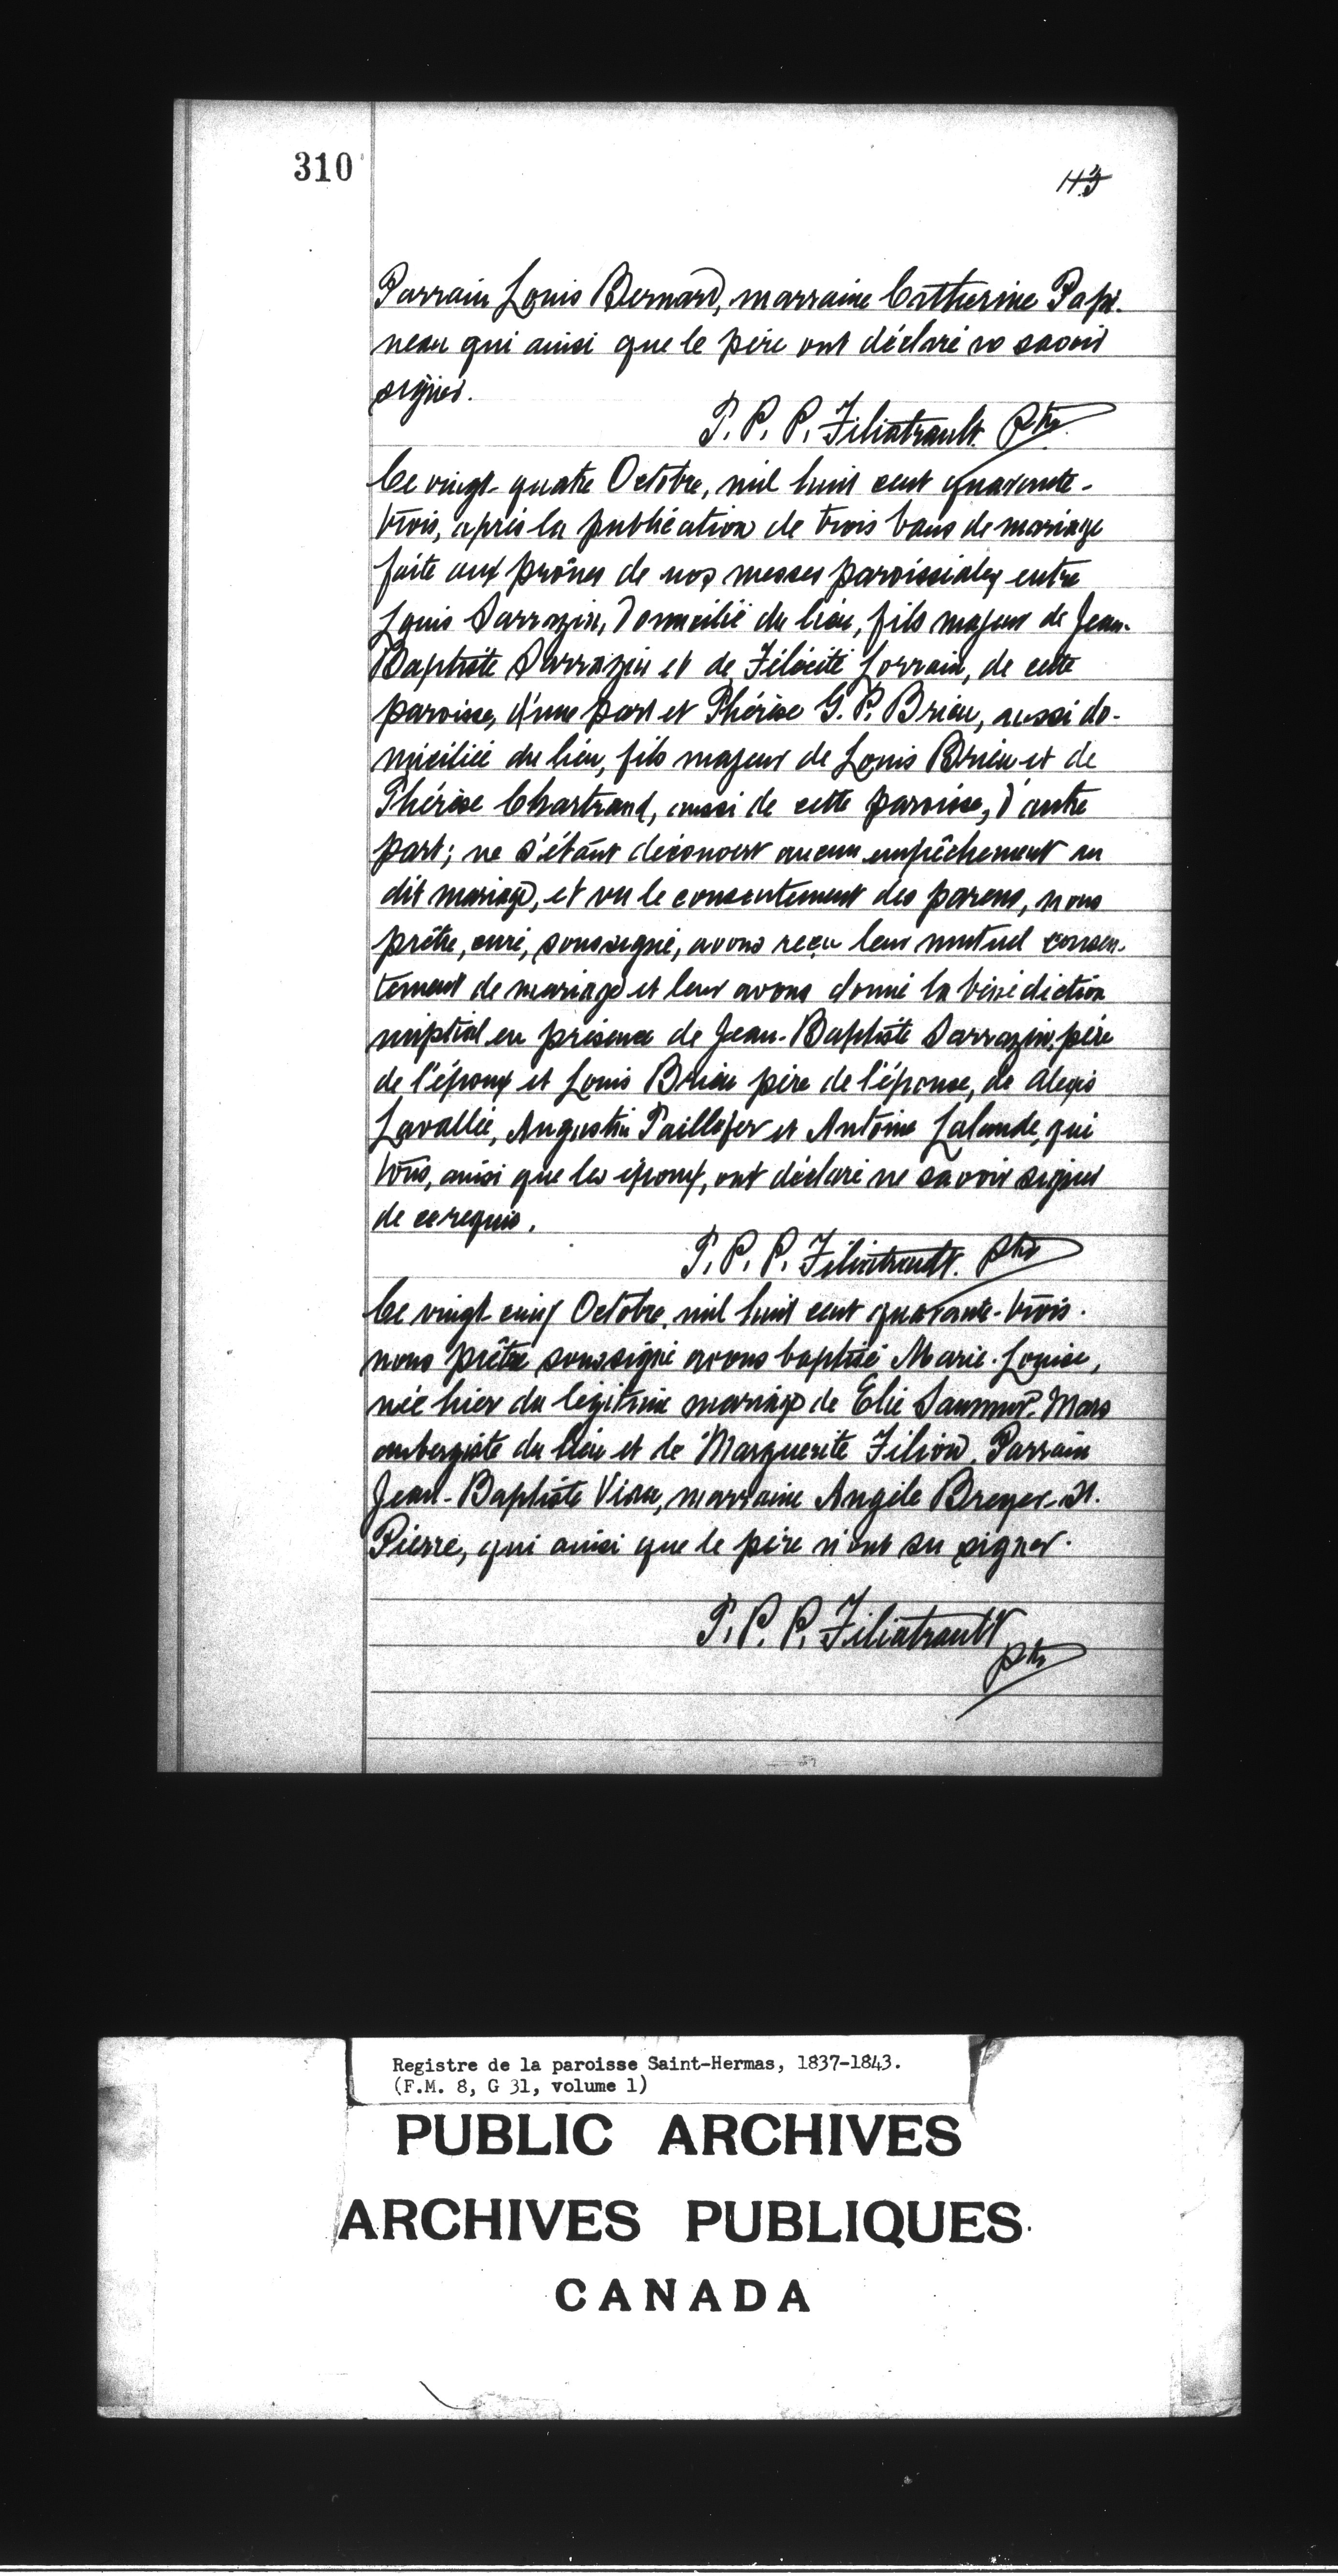 310
113
Parrain Louis Bernard, marraine Catherine Papi-
neau qui ainsi que le père ont déclaré ne savoir
signer.
P. P. P. Filiatrault. Ptre
Ce vingt-quatre Octobre, mil huit cent quarante-
trois, après la publication de trois bans de mariage
faite aux prônes de nos messes paroissiales entre
Louis Sarrazin, domicilié du lieu, fils majeur de Jean-
Baptiste Sarrazin et de Félécité Lorrain, de cette
paroisse, d'une part et Thérèse G. P. Brieu, aussi do-
miciliée du lieu, fils majeur de Louis Brieu et de
Thérèse Chartrand, aussi de cette paroisse, d'autre
part; ne s'étant découvert aucun empêchement au
dit mariage, et vu le consentement des parens, nous
prêtre, curé, soussigné, avons reçu leur mutuel consen-
tement de mariage et leur avons donné la bénédiction
nuptial en présence de Jean-Baptiste Sarrazin, père
de l'époux et Louis Brieu père de l'épouse, de Alexis
Lavallée, Augustin Taillefer et Antoine Lalande, qui
tous, ainsi que les époux, ont déclaré ne savoir signer
de ce requis.
P. P. P. Filiatrault. ptre
Ce vingt-cinq Octobre, mil huit cent quarante-trois.
nous prêtre soussigné avons baptisé Marie-Louise,
née hier du légitime mariage de Elie Saumur-Mars
aubergiste du lieu et de Marguerite Filion. Parrain
Jean-Baptiste Viau, marraine Angèle Breyer-St.
Pierre, qui ainsi que le père n'ont su signer.
P. P. P. Filiatrault
ptre
Registre de la paroisse Saint-Hermas, 1837-1843.
(F.M. 8, G 31, volume 1)
PUBLIC ARCHIVES
ARCHIVES PUBLIQUES
CANADA